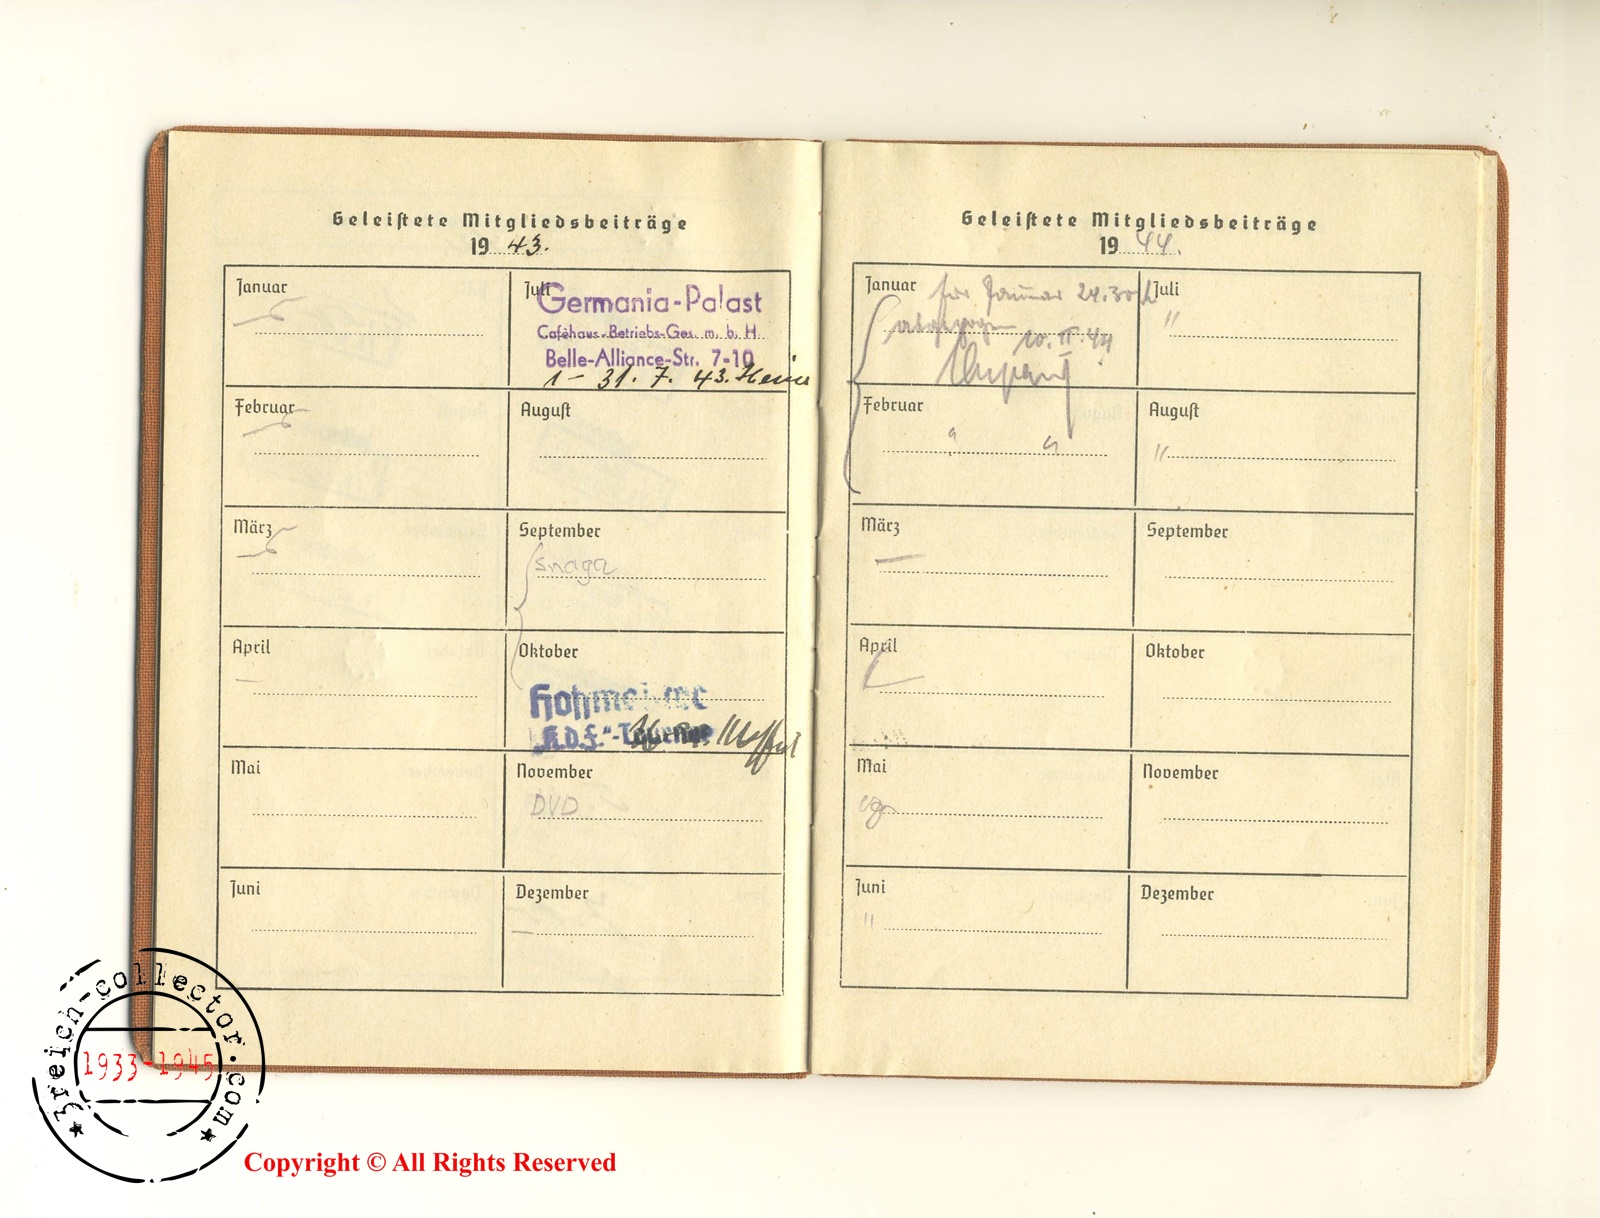 Geleistete Mitgliedsbeiträge
19 43.
Januar
Juli
Germania-Palast
Caféhaus-Betriebs-Ges. m. b. H.
Belle-Alliance-Str. 7-10
1 - 31. 7. 43. Heine
Februar
August
März
September
snaga
April
Oktober
"K.d.F."-Tournee
Mai
November
DVD
Juni
Dezember
Geleistete Mitgliedsbeiträge
19 44.
Januar
für Januar 24.30
abgezogen
10. II. 44
Juli
"
Februar
" "
August
"
März
September
April
Oktober
Mai
November
Juni
"
Dezember
3reich-collector.com
1933-1945
Copyright © All Rights Reserved